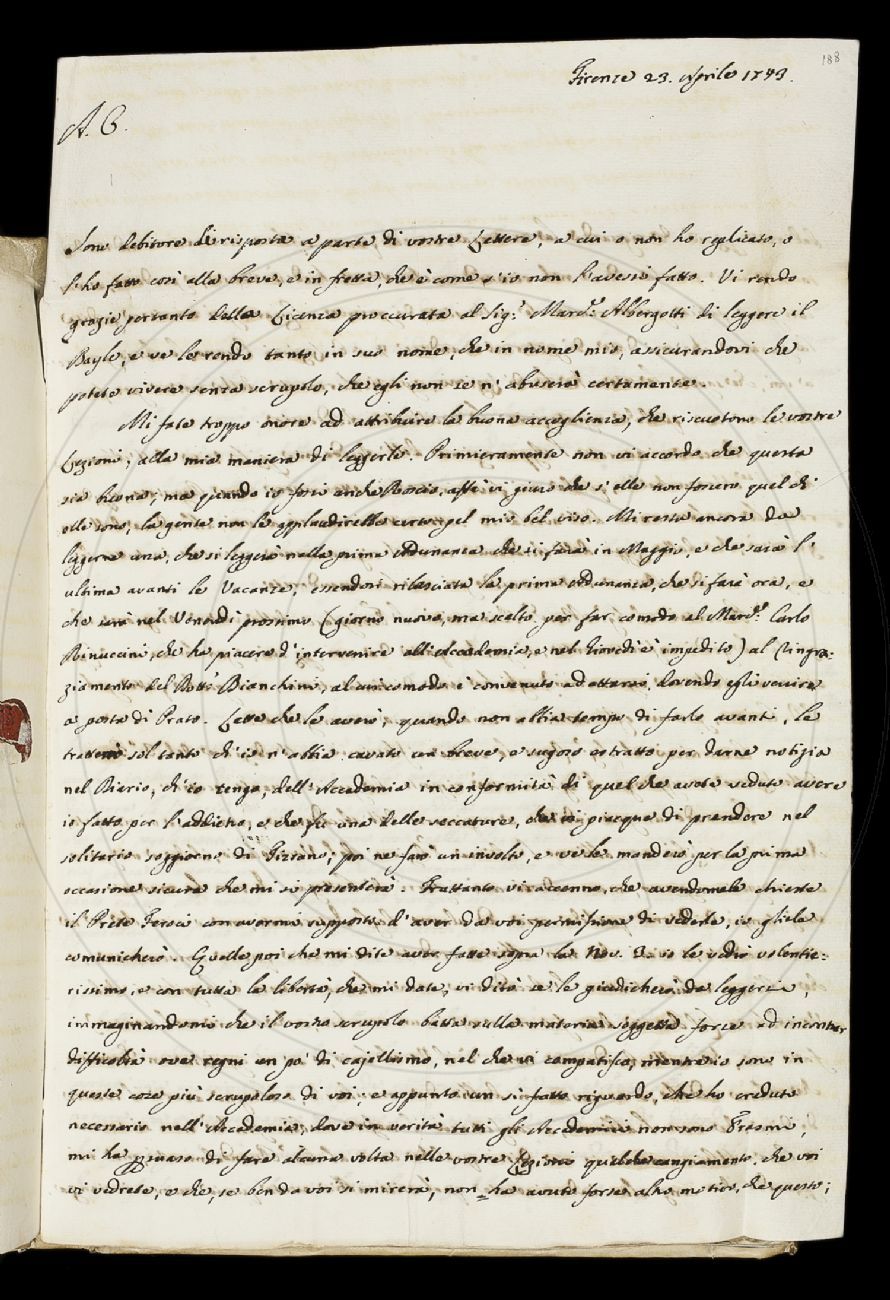 188
Firenze 23. Aprile 1743.
A. C.
Sono debitore di risposta a parte di vostre Lettere, a cui o non ho replicato, o
l'ho fatto così alla breve, e in fretta, che è come s'io non l'avessi fatto. Vi rendo
grazie pertanto della Licenza proccurata al Sig.r March.e Albergotti di leggere il
Bayle, e ve le rendo tanto in suo nome, che in nome mio, assicurandovi che
potete vivere senza scrupolo, che egli non se n'abuserà certamente.
Mi fate troppo onore ad attribuire la buona accoglienza, che riscuotono le vostre
Lezioni, alla mia maniera di leggerle. Primieramente non vi accordo che questa
sia buona; ma quando io fossi anche Roscio, affè vi giuro che s'elle non fossero quel ch'
elle sono, la gente non le applaudirebbe certo pel mio bel viso. Mi resta ancora da
leggerne una, che si leggerà nella prima Adunanza che si farà in Maggio, e che sarà l'
ultima avanti le Vacanze, essendosi rilasciata la prima Adunanza, che si farà ora, e
che sarà nel Venerdì prossimo (giorno nuovo, ma scelto per far comodo al March.e Carlo
Rinuccini, che ha piacere d'intervenire all'Accademia, e nel Giovedì è impedito) al Ringra-
ziamento del Dott.r Bianchini, al cui comodo è convenuto ad attarsi, dovendo egli venire
a posta di Prato. Lette che le averò, quando non abbia tempo di farlo avanti, le
tratterrò sol tanto ch'io n'abbia cavato un breve, e sugoso estratto per darne notizia
nel Diario, ch'io tengo, dell'Accademia in conformità di quel che avete veduto avere
io fatto per l'addietro, e che fu una delle seccature, che vi piacque di prendere nel
solitario soggiorno di Tizzano; poi ne farò un involto, e ve le manderò per la prima
occasione sicura che mi si presenterà. Frattanto vi accenno, che avendomele chieste
il Prete Feroci con avermi supposto d'aver da voi permissione di vederle, io gliele
comunicherò. Quelle poi che mi dite aver fatte sopra la Nov. 3. io le vedrò volentie-
rissimo, e con tutta la libertà, che mi date, vi dirò se le giudicherò da leggersi,
immaginandomi che il vostro scrupolo batta sulla materia soggetta forse ad incontrar
difficoltà ove regni un po' di cajellismo, nel che vi compatisco, mentre io sono in
queste cose più scrupoloso di voi; e appunto un sì fatto riguardo, che ho creduto
necessario nell'Accademia, dove in verità tutti gli Accademici non sono Erasmi,
mi ha persuaso di fare alcuna volta nelle vostre Lezioni qualche cangiamento, che voi
vi vedrete, e che, se ben da voi si mirerà, non ha avuto forse altro motivo, che questo;